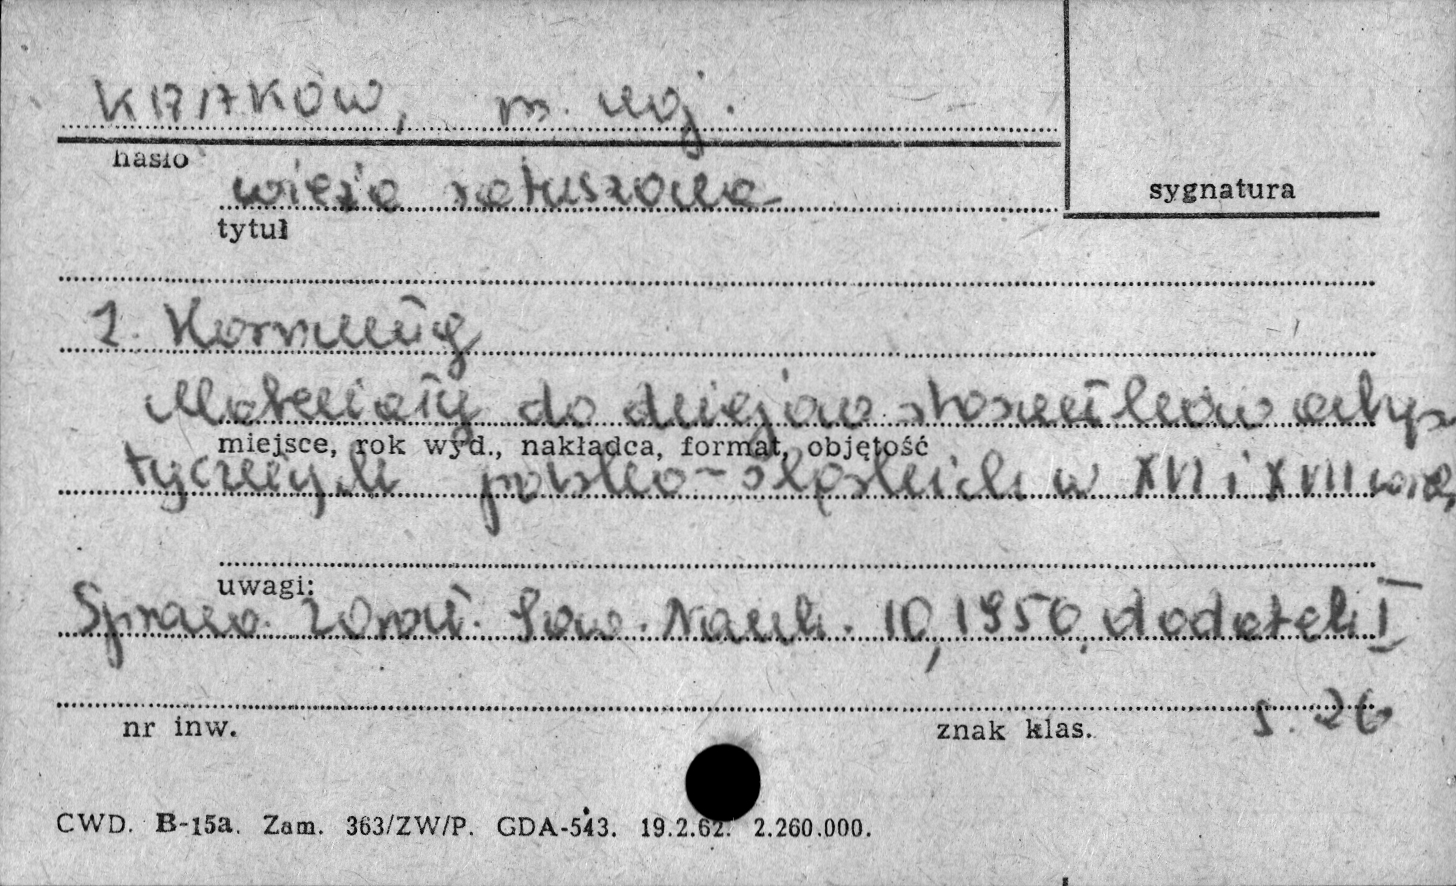 KRAKÓW, m. woj.
hasło
wieża ratuszowa
sygnatura
tytuł
1. Hornung
Materiały do dziejów stosunków artys
miejsce, rok wyd., nakładca, format, objętość
tycznych polsko-śląskich w XVI i XVII wie,
uwagi:
Spraw. Wrocł. Tow. Nauk. 10, 1950, dodatek I
s. 26
nr inw.
znak klas.
CWD. B-15a. Zam. 363/ZW/P. GDA-543. 19.2.62. 2.260.000.